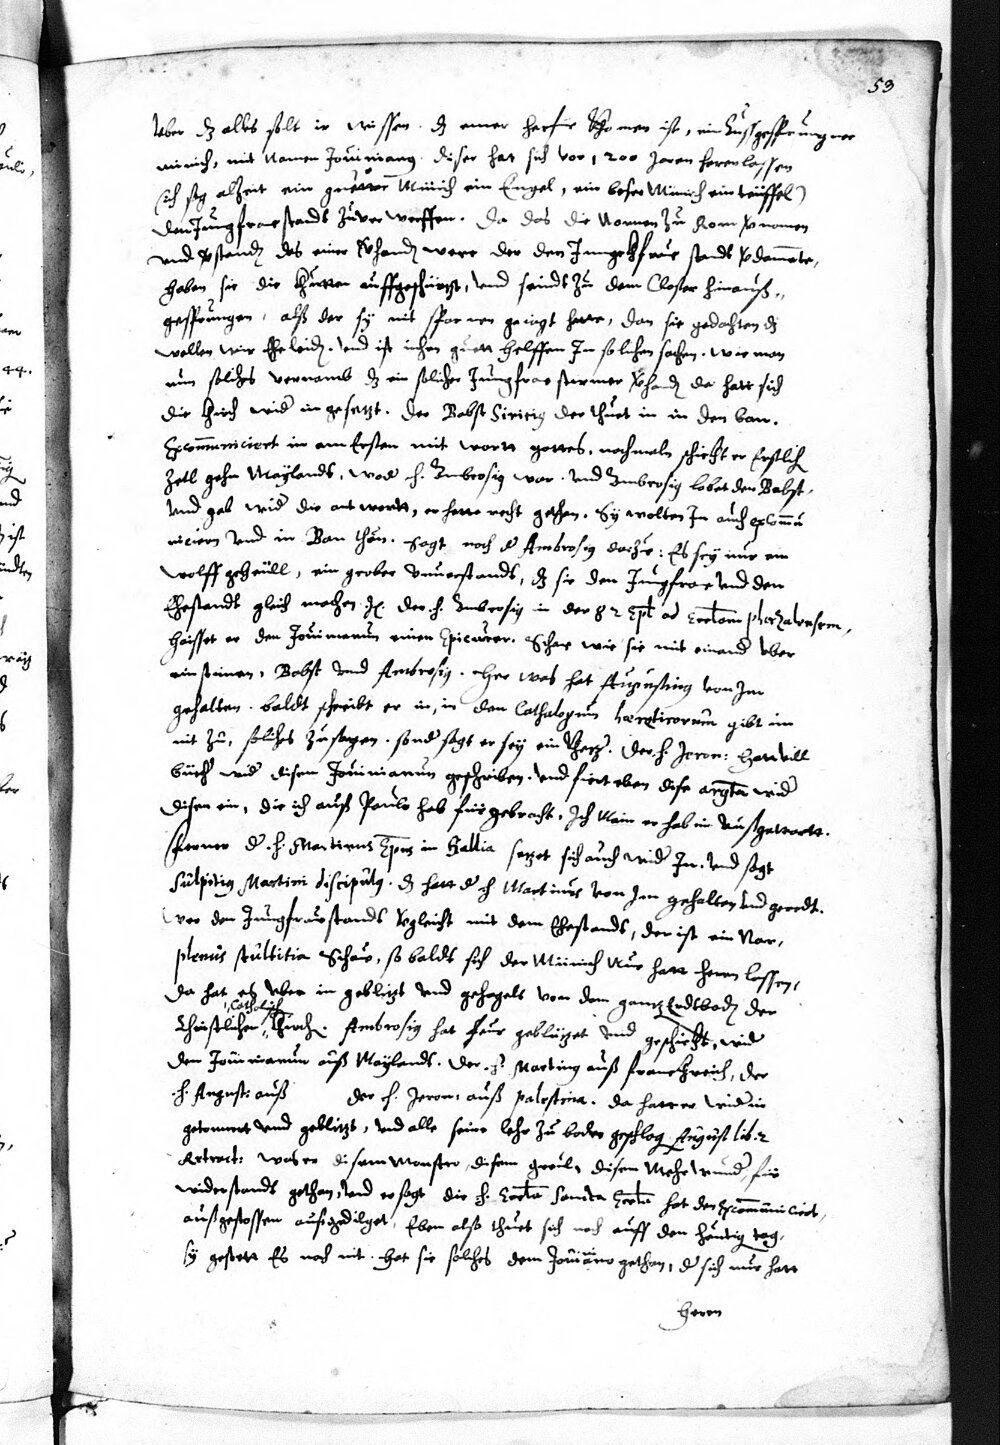 53
Uber dz alles solt ir wissen. dz einer herfür khomen ist, ein außgesprungner
minich, mit namen Jovinianus. diser hat sich vor 1200 Jaren heren lassen
(ich sag alzeit ein guetter Münich ein Engel, ein böser Minich ein teüffel)
den Jungfrawstandt zuverwerffen. Da das die Nonnen zu Rom vernomen
und verstanden das einer verhanden were der den Jungckfraw standt verdammete,
haben sie die khutten auffgeschürtzt, und seindt zu dem Closter hinauß
gesprungen, alß der sy mit sporen geiagt hette, dan sie gedachten dz
wollen wir Eheleid. und ist inen guett helffen In solchen sachen. wie man
nun solches vernamb dz ein solcher Jungfraw sturmer verhanden da hatt sich
die kirch wider in gesetzt. Der Babst Siricius der thuet in in den ban.
Excommuniciert in am Ersten mit wortt gottes, nachmaln schickt er Erstlich
Zetl gehn Maylandt, wo der h. Ambrosius war. und Ambrosius lobet den Babst,
und gab wider die antwortt, er hette recht gethan. Sy wolten In auch excommu
niciern und in Ban thun. Sagt noch der Ambrosius darzu: Es sey nur ein
wolff geheüll, ein grober unverstandt, dz sie den Jungfraw und den
Ehestandt gleich machen. Der h. Ambrosius in der 82 Epl ad Eccliam Vercellensem,
haisset er den Jovinianum einen Epicurer. Schaw wie sie mit einander uber
einstimen, Babst und Ambrosius. Aber was hat Augustinus von Im
gehalten. baldt schreibt er in, in den Cathalogum haereticorum gibt im
nit zu, solches zusagen. sonder sagt er sey ein khetzer. Der h. Jeron: hatt vill
büecher wider disem Jovinianum geschriben. und fiert eben dise argta wider
disen ein, die ich auß Paulo hab fürgebracht. Ich Main er hab im außgewartt.
Ferner der h. Martinus Epus in Gallia setzet sich auch wider In. und sagt
Sulpitius Martini discipulus. dz hatt der h Martinus von Im gehalten und geredt.
wer den Jungfrawstandt vergleicht mit dem Ehestandt, der ist ein Nar,
plenus stultitia Schaw, so baldt sich der Münich Nur hatt heren lassen,
da hat es uber in geblitzt und gehagelt von dem gantzen Erdtboden der
Christlichen Catholischen kirchen. Ambrosius hat Feur geblitzet und geschickt, wider
den Jovinianum auß Maylandt. Der h. Martinus auß franckhreich, der
h. August: auß der h. Jeron: auß palestina. da hatt er wider in
getonnert und geblitzt, und alle seine lehr zu boden geschlagen August lib. 2
Retract: was er disem Monstro, disem greul, disem Mehr wunder, für
widerstandt gethan, und er sagt die h. Ecclia sancta Ecclia hat den Excommuniciert,
außgestossen außgedilget, Eben also thuet sich noch auff den heutig tag,
sy gestett Es noch nit. hat sie solches dem Joviniano gethan, der sich nur hatt
heren